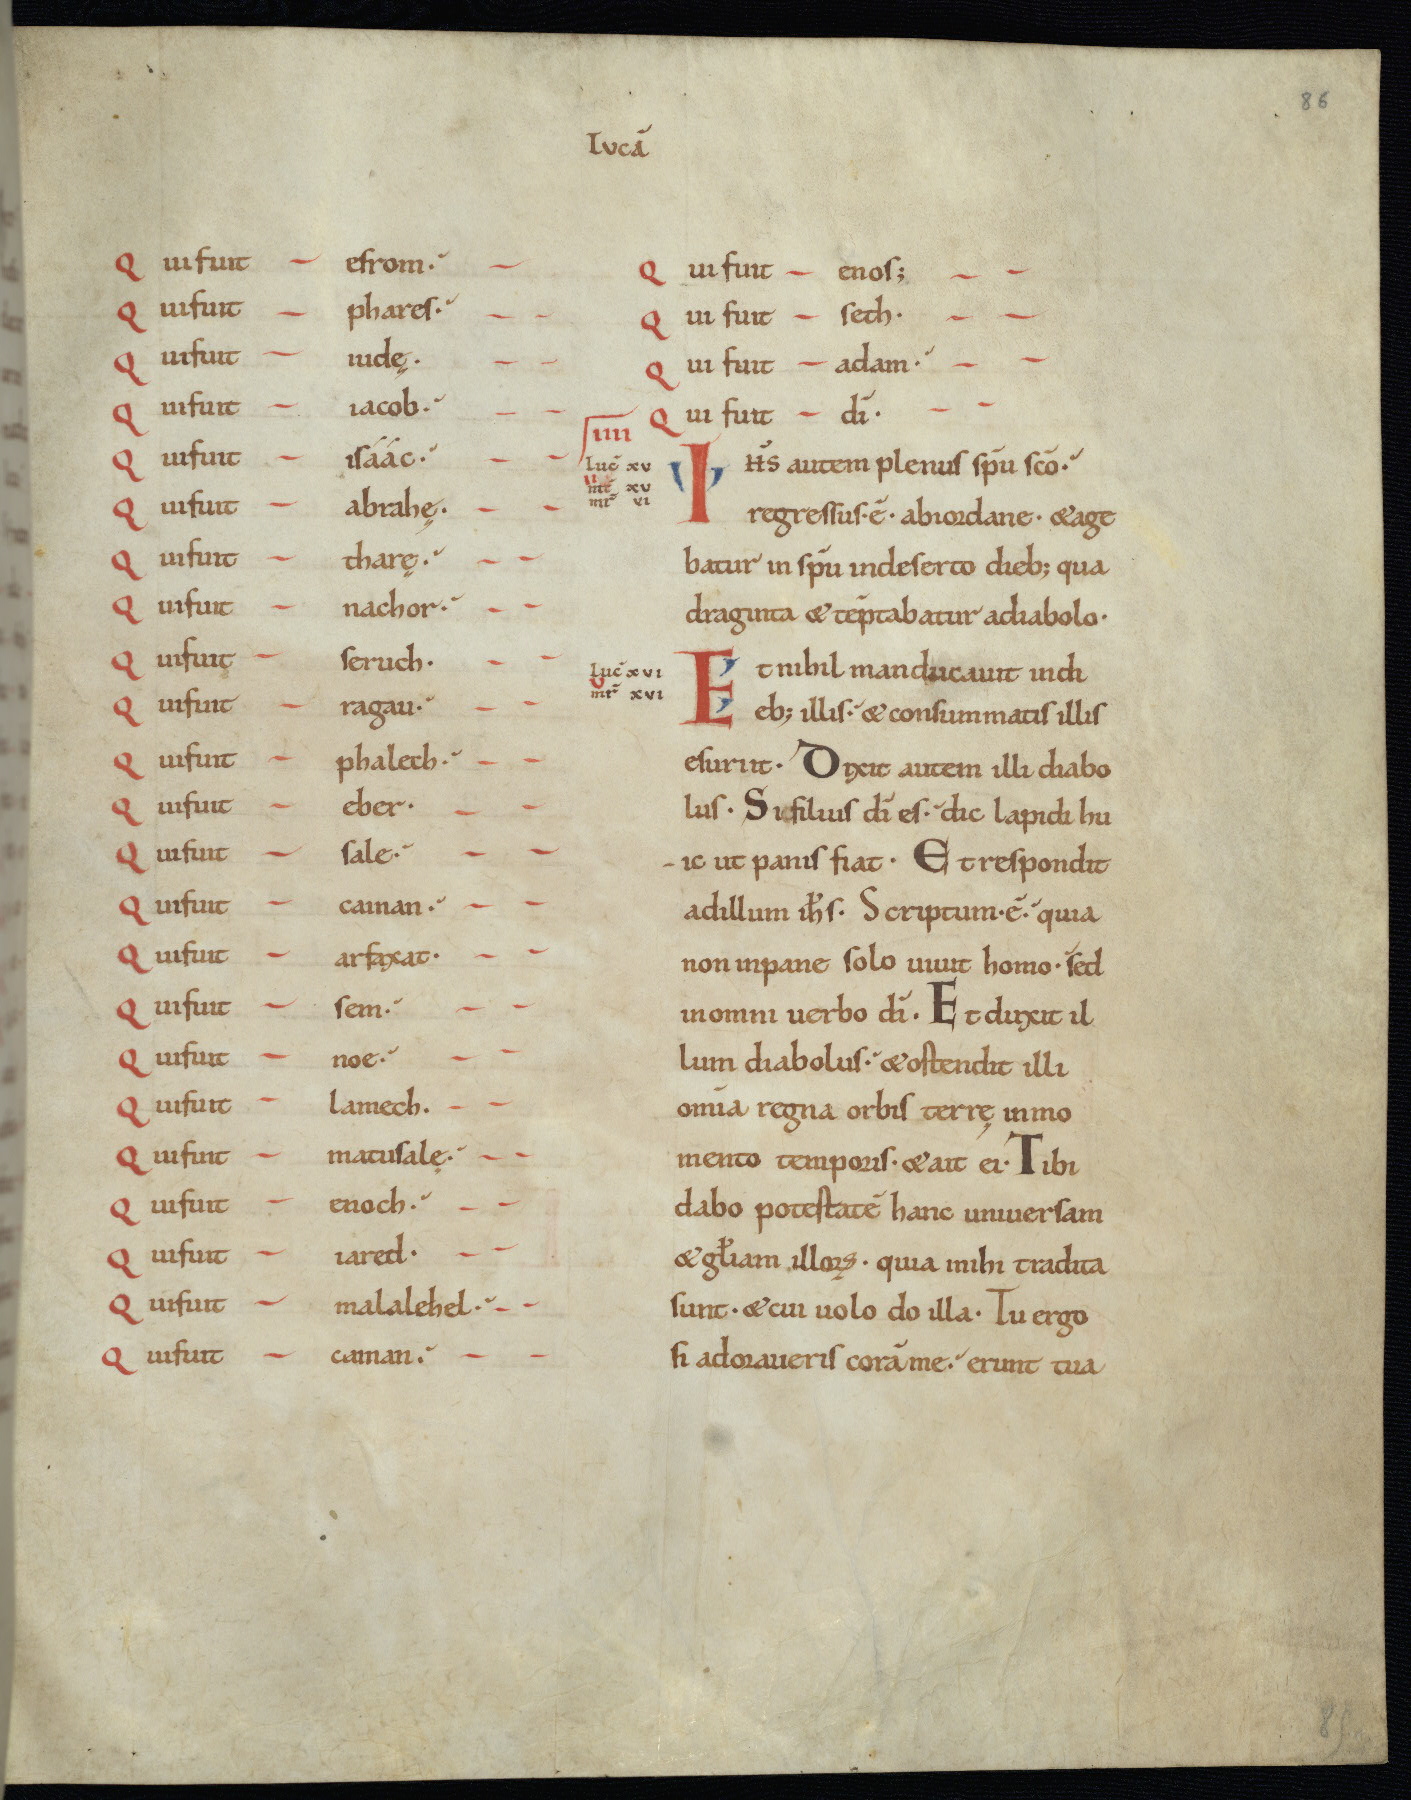 86
Lucā
Qui fuit esrom.
Qui fuit phares.
Qui fuit iudę.
Qui fuit iacob.
Qui fuit isáác.
Qui fuit abrahę.
Qui fuit tharę.
Qui fuit nachor.
Qui fuit seruch.
Qui fuit ragau.
Qui fuit phalech.
Qui fuit eber.
Qui fuit sale.
Qui fuit cainan.
Qui fuit arfaxat.
Qui fuit sem.
Qui fuit noe.
Qui fuit lamech.
Qui fuit matusalę.
Qui fuit enoch.
Qui fuit iared.
Qui fuit malalehel.
Qui fuit cainan.
Qui fuit enos;
Qui fuit seth.
Qui fuit adam.
Qui fuit dī.
IIII
Luc̄ xv
mt̄ xv
mr̄ vi
IHS̄ autem plenus sp̄u sc̄o.
regressus.ē. abiordane. & age
batur in sp̄u indeserto dieb; qua
draginta & tēptabatur adiabolo.
Luc̄ xvi
mt̄ xvi
Et nihil manducauit indi
eb; illis. & consummatis illis
esuriit. Dixit autem illi diabo
lus. Si filius dī es. dic lapidi hu
-ic ut panis fiat. Et respondit
adillum ih̄s. Scriptum.ē. quia
non inpane solo uiuit homo. sed
inomni uerbo dī. Et duxit il
lum diabolus. & ostendit illi
om̄ia regna orbis terrę inmo
mento temporis. & ait ei. Tibi
dabo potestatē hanc uniuersam
& gl̄iam illoꝝ. quia mihi tradita
sunt. & cui uolo do illa. Tu ergo
si adoraueris corā me. erunt tua